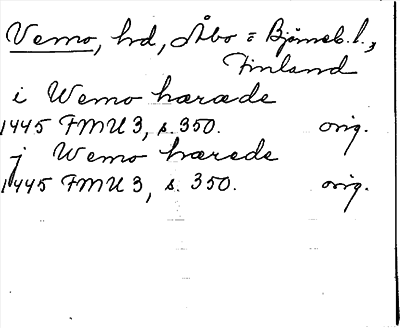 Vemo, hd, Åbo = Björneb. l.,
Finland
i Wemo hæræde
1445 FMU 3, s. 350. orig.
j Wemo hærede
1445 FMU 3, s. 350. orig.